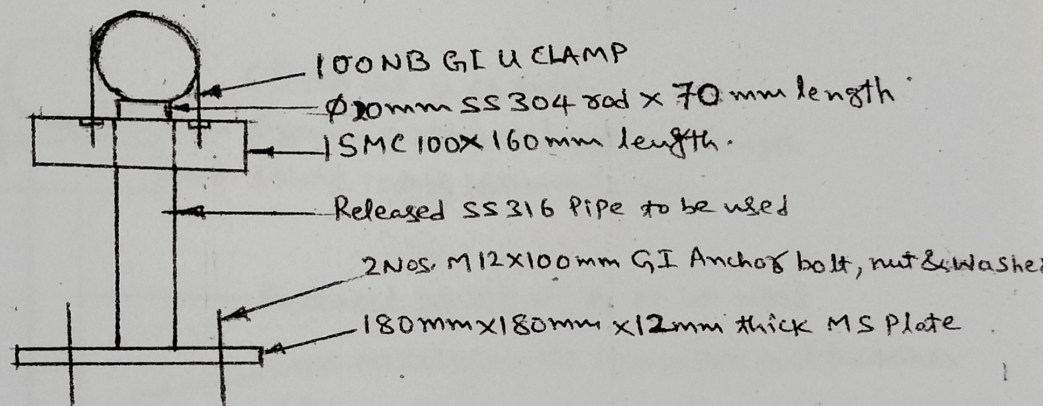 100NB GI U CLAMP
Ø10mm SS304 rod x 70 mm length
ISMC 100x160mm length.
Released SS316 Pipe to be used
2Nos. M12x100mm GI Anchor bolt, nut & Washer
180mmx180mmx12mm thick MS Plate